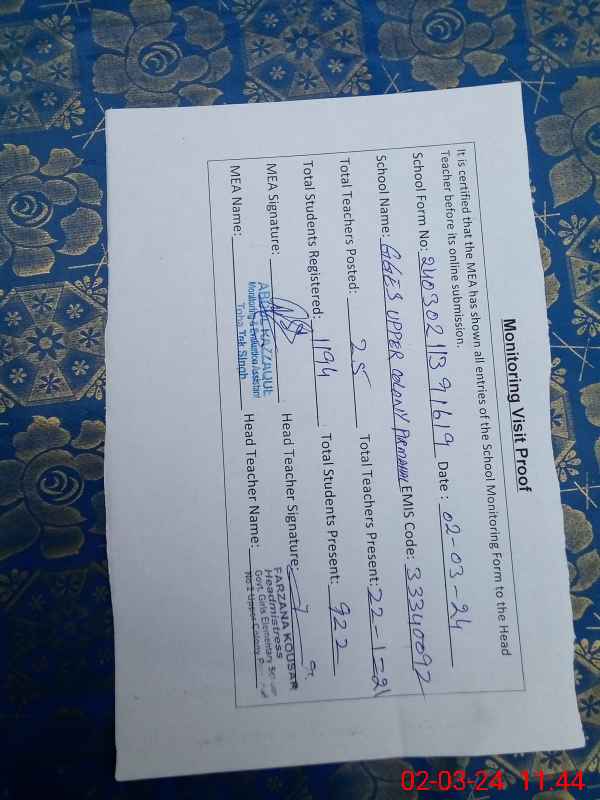 Monitoring Visit Proof
It is certified that the MEA has shown all entries of the School Monitoring Form to the Head
Teacher before its online submission.
School Form No: 24030211391619 Date : 02-03-24
School Name: GGES UPPER COLONY EMIS Code: 33340092
Total Teachers Posted: 25 Total Teachers Present: 22-1=21
Total Students Registered: 1194 Total Students Present: 922
MEA Signature: Head Teacher Signature:
MEA Name: Head Teacher Name:
ABDUL RAZZAQUE
Monitoring & Evaluation Assistant
Toba Tek Singh
FARZANA KOUSAR
Headmistress
Govt. Girls Elementary
No 2 Upper Colony
02-03-24 11.44